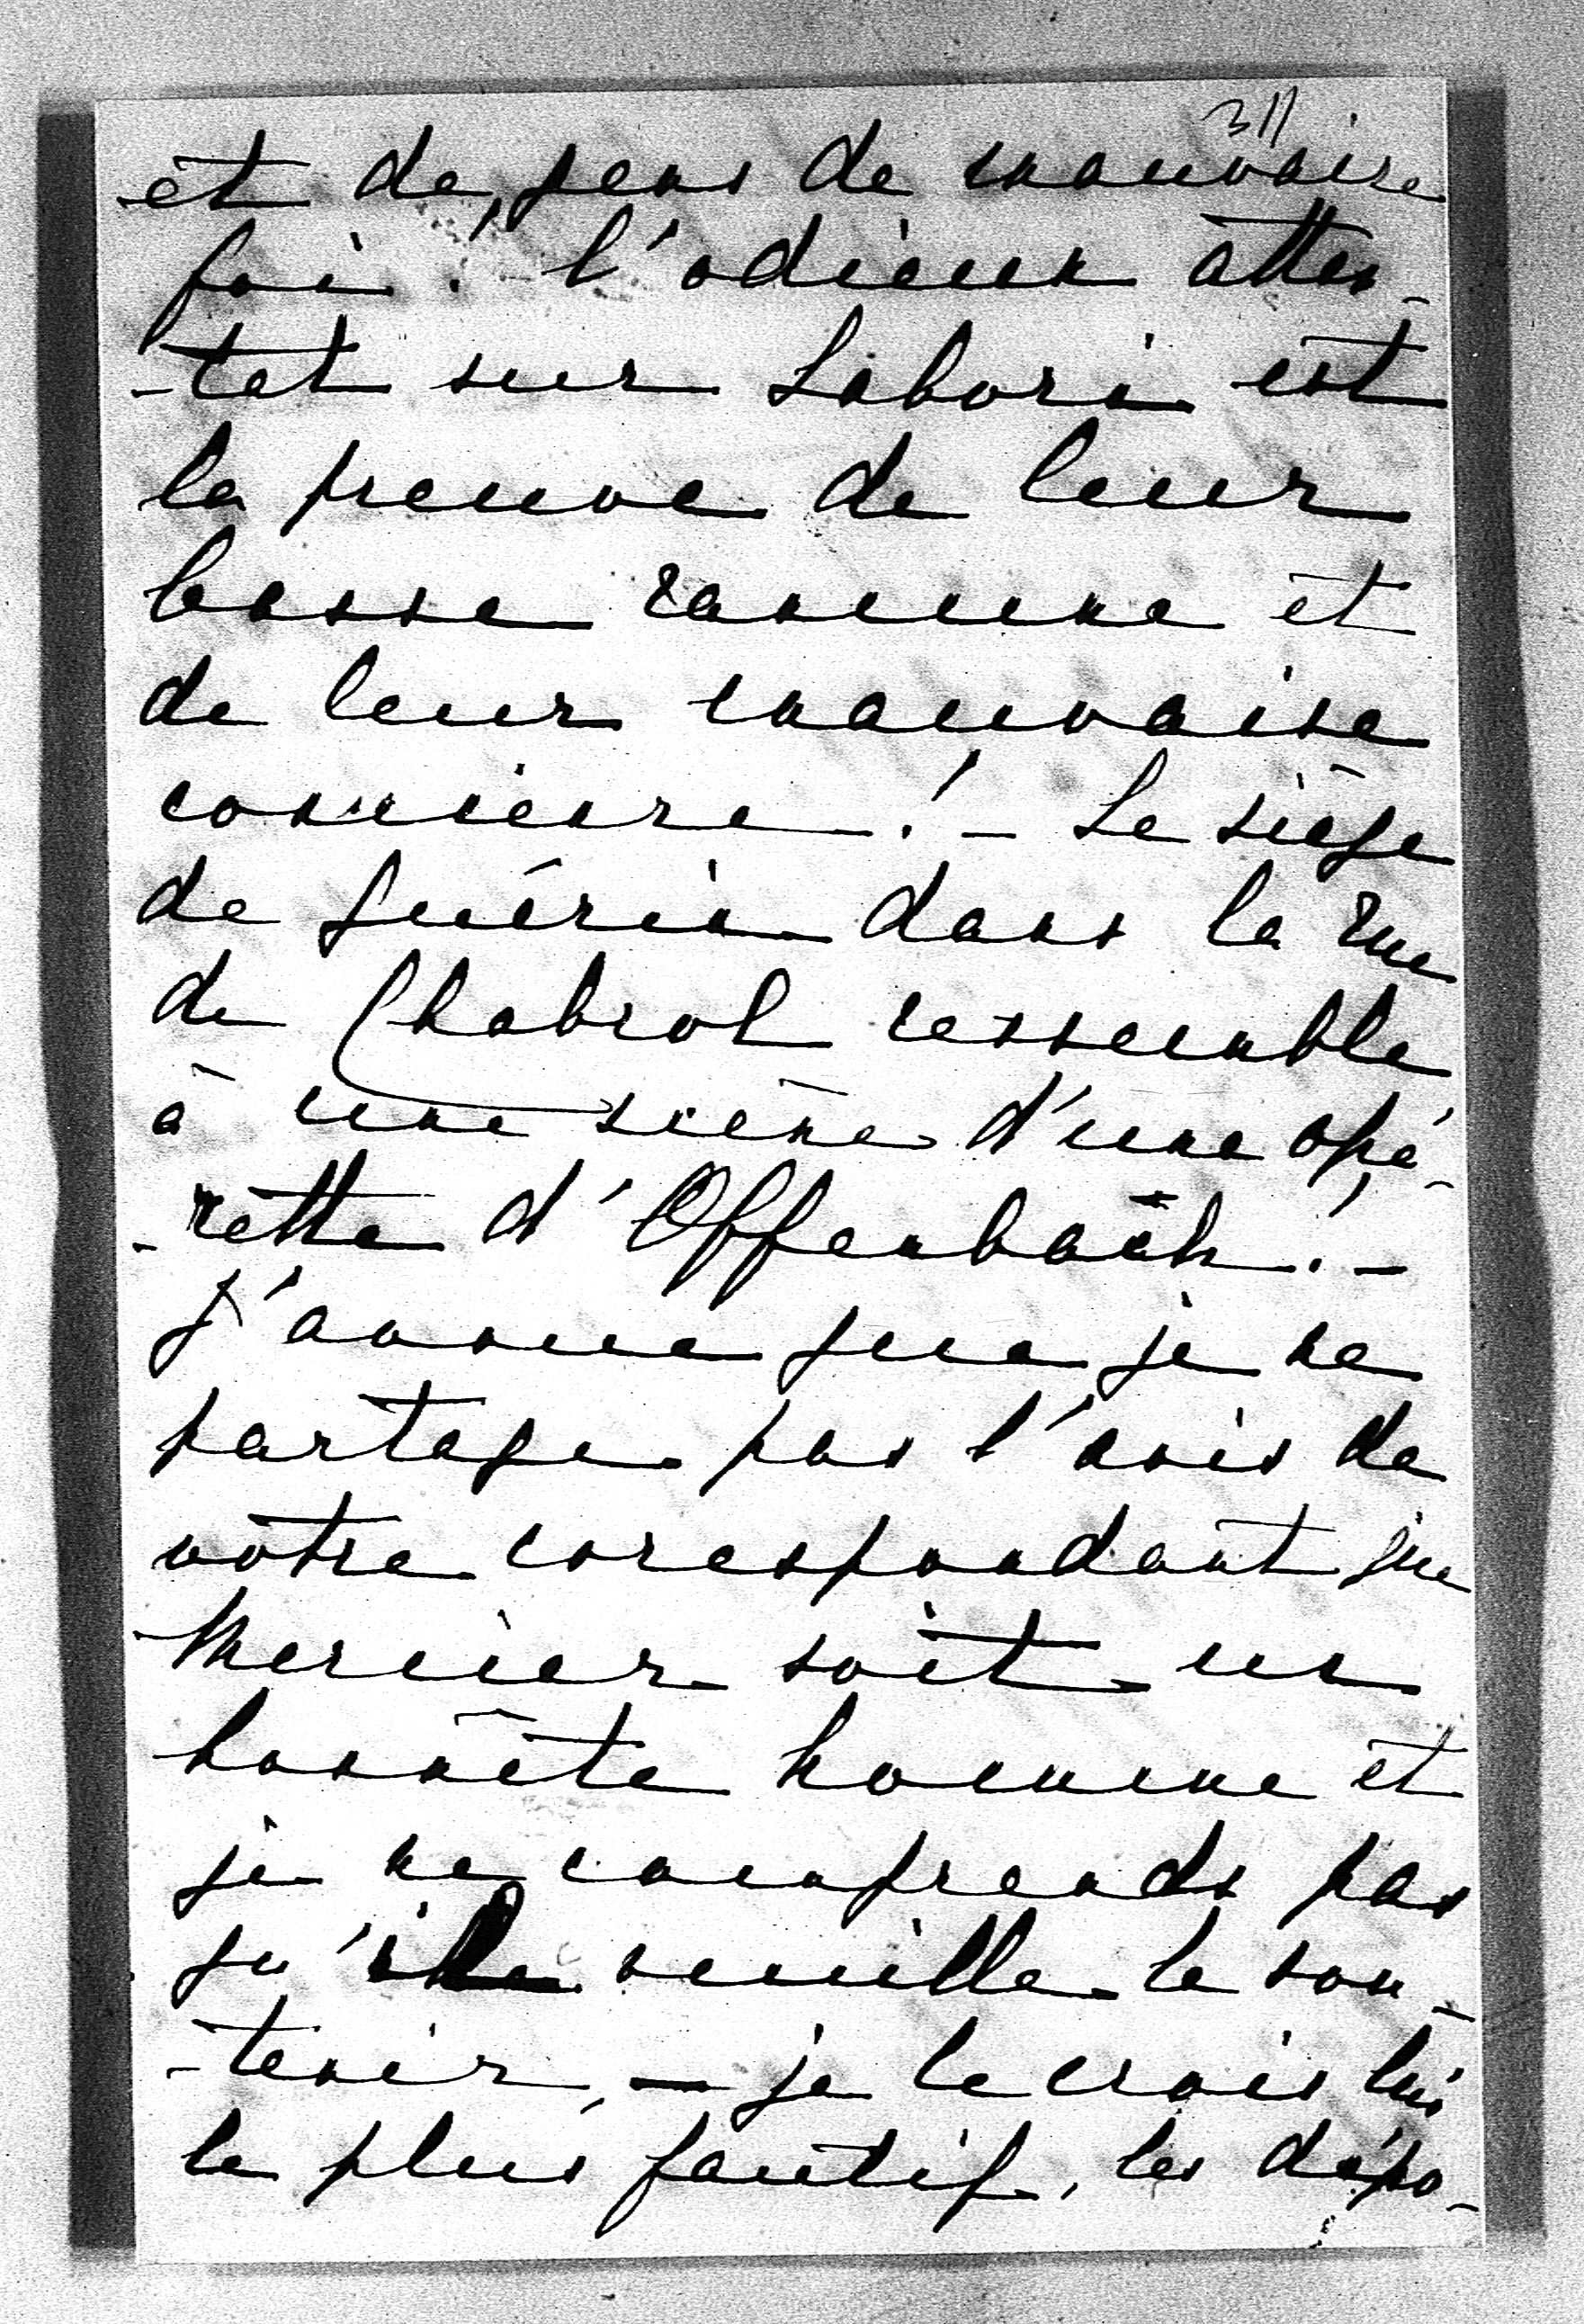 311
et de gens de mauvaise
foi! l'odieux atten-
-tat sur Labori est
la preuve de leur
basse rancune et
de leur mauvaise
conscience! - Le siège
de Guérin dans la rue
de Chabrol ressemble
à une scène d'une opé-
-rette d'Offenbach! -
J'avoue que je ne
partage pas l'avis de
votre corespondant que
Mercier soit un
honnête homme et
je ne comprends pas
qu'il veuille le sou-
-tenir, - je le crois lui
le plus fautif, les dépo-